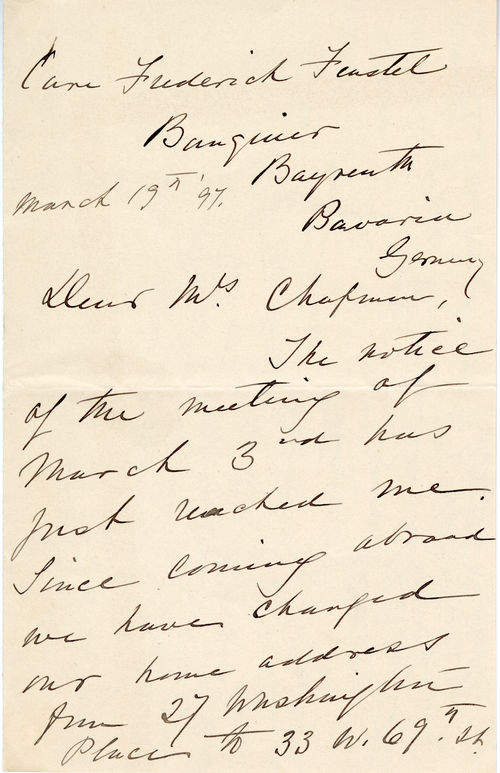 Care Frederick Feustel
Banquier
Bayreuth
March 19th '97.
Bavaria
Germany
Dear Mrs Chapman,
The notice
of the meeting of
March 3rd has
just reached me.
Since coming abroad
we have changed
our home address
from 27 Washington
Place to 33 W. 69th St.